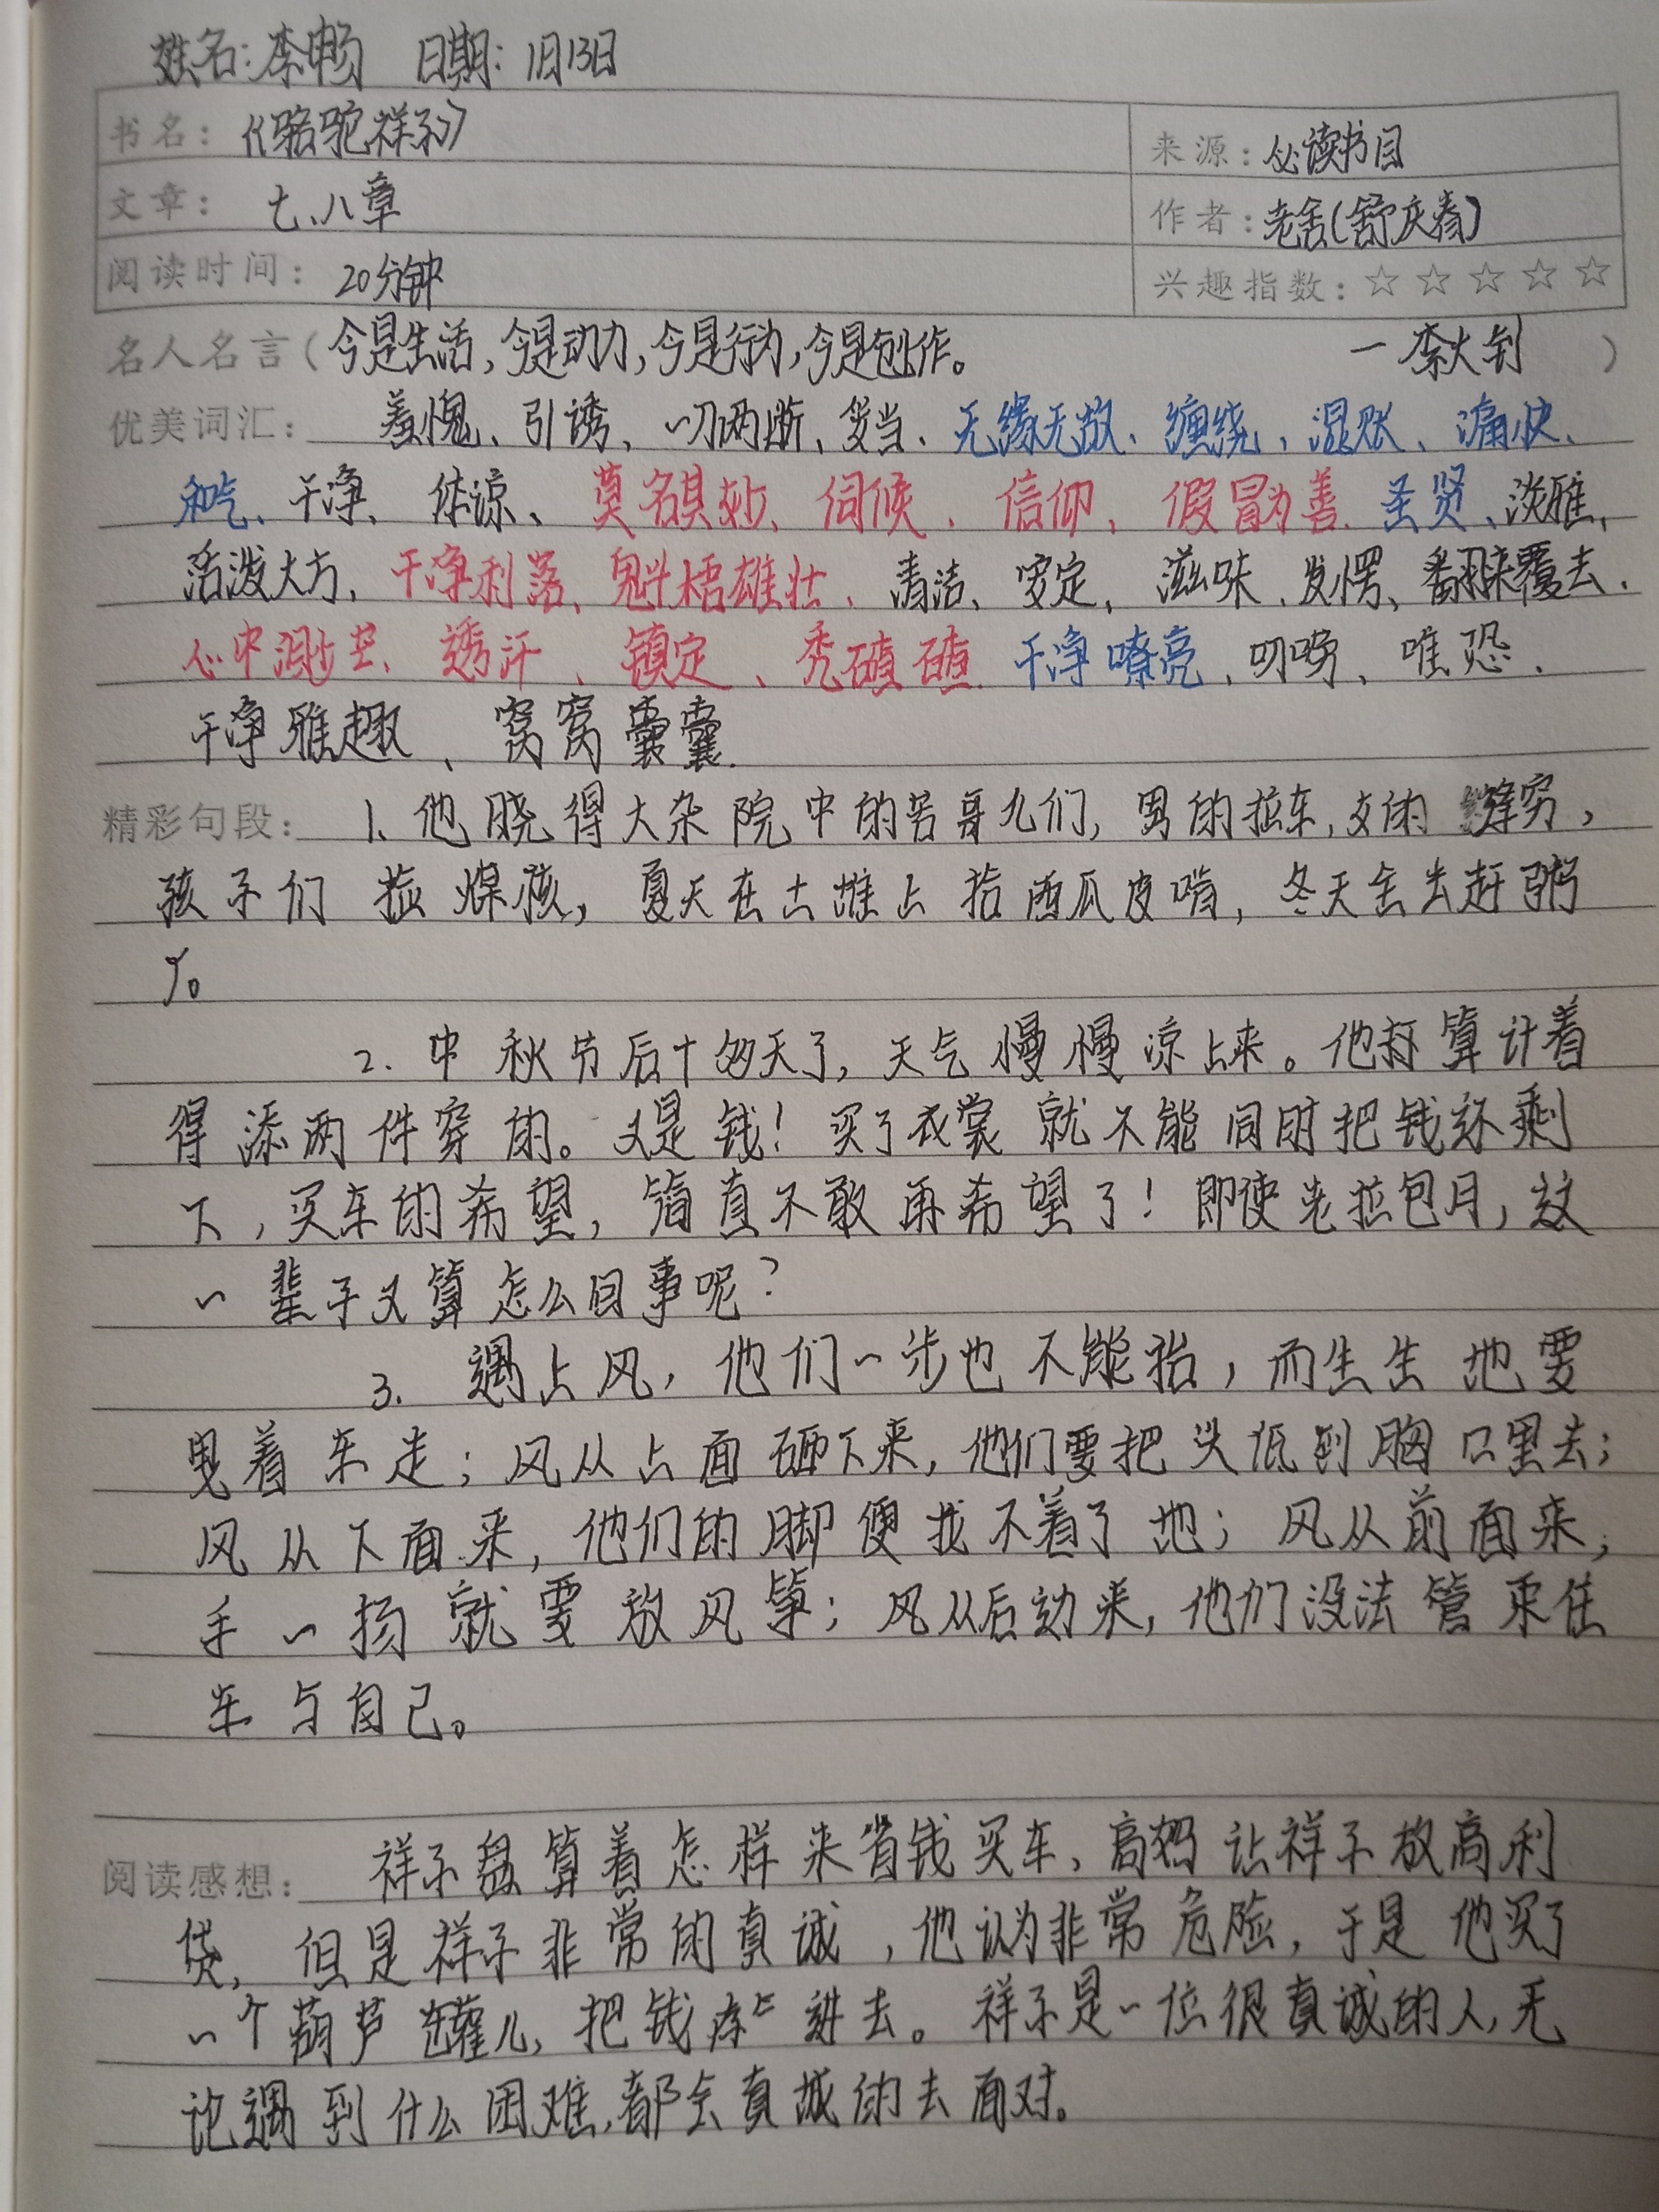 姓名:李畅 日期:1月13日
书名:《骆驼祥子》 来源:必读书目
文章: 七、八章 作者:老舍(舒庆春)
阅读时间: 20分钟 兴趣指数:☆☆☆☆☆
名人名言(今是生活,今是动力,今是行为,今是创作。 —李大钊 )
优美词汇: 羞愧、引诱、一刀两断、妥当、无缘无故、缠绕、混账、痛快、
和气、干净、体谅、莫名其妙、伺候、信仰、假冒为善、圣贤、淡雅、
活泼大方、干净利落、魁梧雄壮、清洁、安定、滋味、发愣、翻来覆去、
心中测空、透汗、镇定、秃碴碴、干净嘹亮、叨唠、唯恐、
干净雅趣、窝窝囊囊.
精彩句段: 1.他晓得大杂院中的苦哥儿们,男的拉车,女的缝穷,
孩子们捡煤核,夏天在土堆上拾西瓜皮啃,冬天全去赶粥
厂。
2.中秋节后十多天了,天气慢慢凉上来。他算计着
得添两件穿的。又是钱!买了衣裳就不能同时把钱还剩
下,买车的希望,简直不敢再希望了!即使老拉包月,这
一辈子又算怎么回事呢?
3.遇上风,他们一步也不能抬,而生生地要
曳着车走;风从上面砸下来,他们要把头低到胸口里去;
风从下面来,他们的脚便找不着了地;风从前面来,
手一扬就要放风筝;风从后边来,他们没法管束住
车与自己。
阅读感想: 祥子盘算着怎样来省钱买车,高妈让祥子放高利
贷,但是祥子非常的真诚,他认为非常危险,于是他买了
一个葫芦罐儿,把钱存进去。祥子是一位很真诚的人,无
论遇到什么困难,都会真诚的去面对。